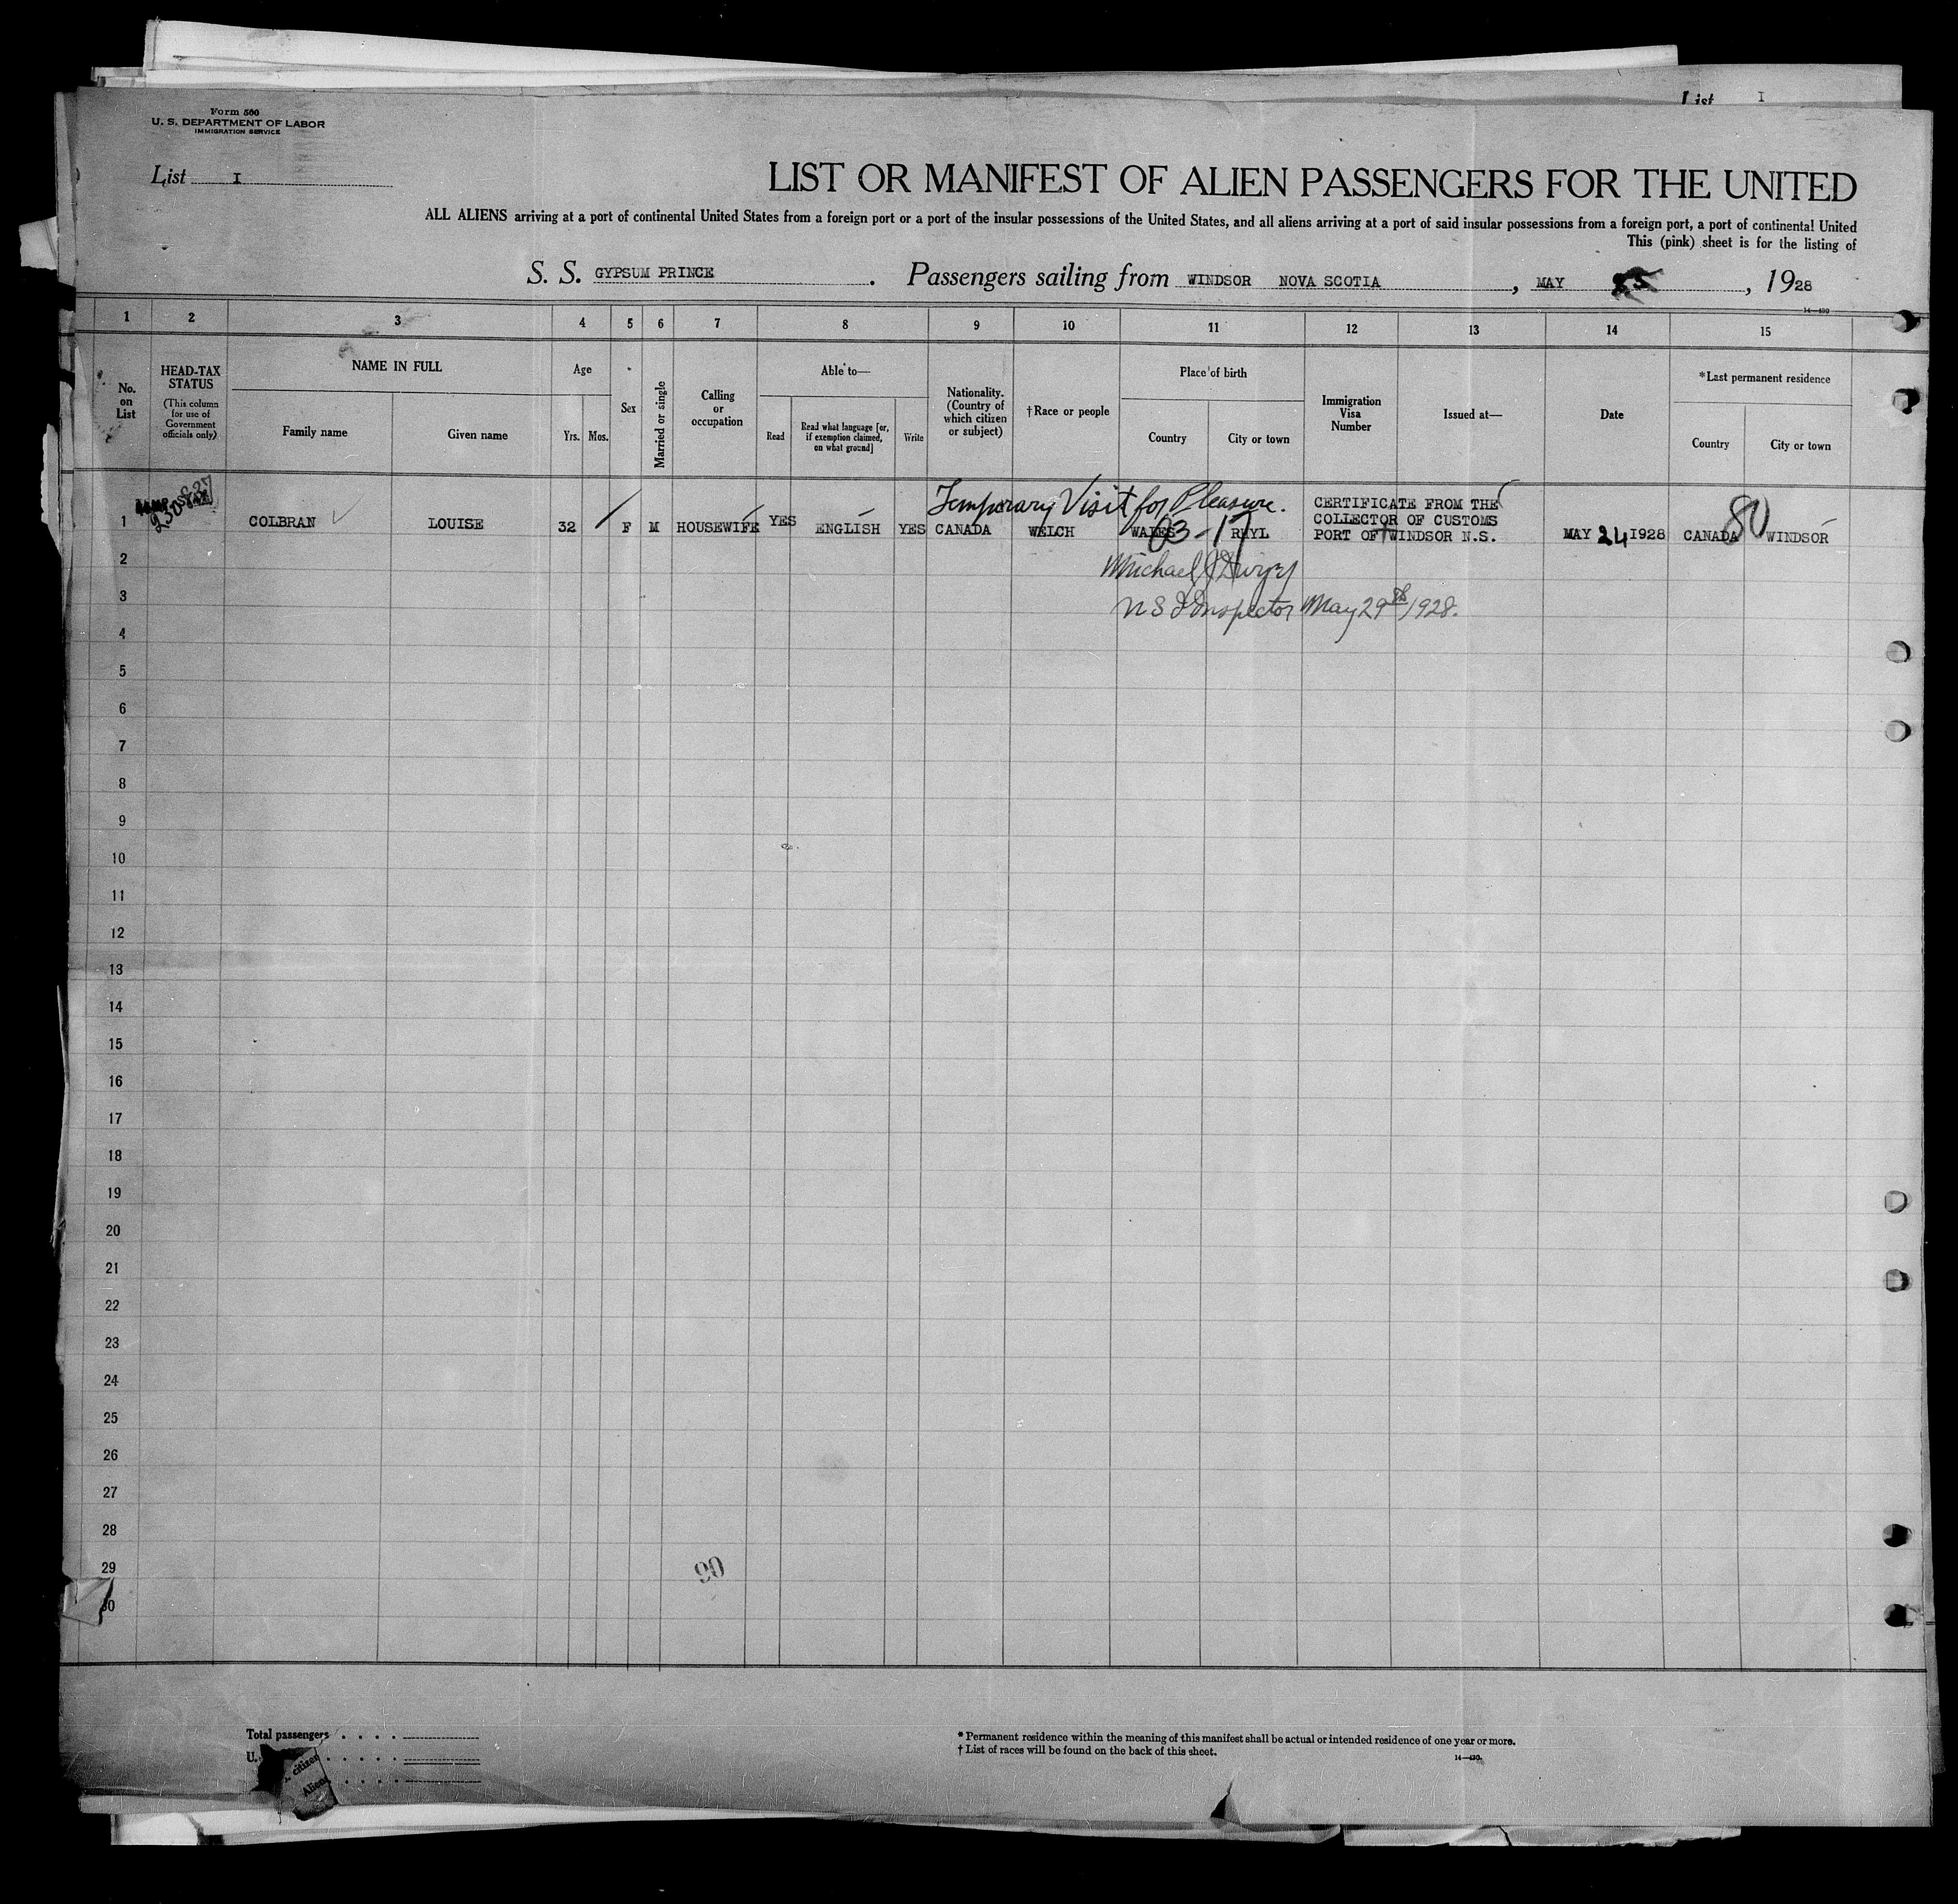 List I
Form 500
U. S. DEPARTMENT OF LABOR
IMMIGRATION SERVICE
List I
LIST OR MANIFEST OF ALIEN PASSENGERS FOR THE UNITED
ALL ALIENS arriving at a port of continental United States from a foreign port or a port of the insular possessions of the United States, and all aliens arriving at a port of said insular possessions from a foreign port, a port of continental United
This (pink) sheet is for the listing of
S. S. GYPSUM PRINCE. Passengers sailing from WINDSOR NOVA SCOTIA, MAY, 1928
14—430
1 2 3 4 5 6 7 8 9 10 11 12 13 14 15
No. on List
HEAD-TAX STATUS
(This column for use of Government officials only)
NAME IN FULL
Family name
Given name
Age
Yrs. Mos.
Sex
Married or single
Calling or occupation
Able to—
Read
Read what language [or, if exemption claimed, on what ground]
Write
Nationality. (Country of which citizen or subject)
†Race or people
Place of birth
Country
City or town
Immigration Visa Number
Issued at—
Date
*Last permanent residence
Country
City or town
Temporary Visit for Pleasure.
1 COLBRAN LOUISE 32 F M HOUSEWIFE YES ENGLISH YES CANADA WELCH WALES RHYL
03-17
CERTIFICATE FROM THE
COLLECTOR OF CUSTOMS
PORT OF WINDSOR N.S.
MAY 24 1928 CANADA WINDSOR
80
2
Michael J Dwyer
3
U S I Inspector May 29th 1928.
4
5
6
7
8
9
10
11
12
13
14
15
16
17
18
19
20
21
22
23
24
25
26
27
28
29
90
30
Total passengers
U.
citizen
Alien
* Permanent residence within the meaning of this manifest shall be actual or intended residence of one year or more.
† List of races will be found on the back of this sheet.
14—430